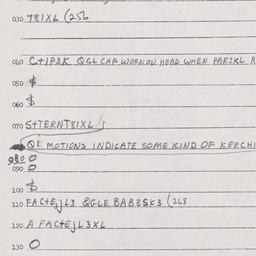 030 T8IXL (256
060 C+IP3K QGL CAP WORN ON HEAD WHEN PARIKL R
050 $
060 $
070 S+TERNT8IXL
QE MOTIONS INDICATE SOME KIND OF KERCHI
080 O
090 O
100 $
110 FAC+EJL3 QGLE BAB8SK3 (268
120 A FAC+EJL3XL
130 O